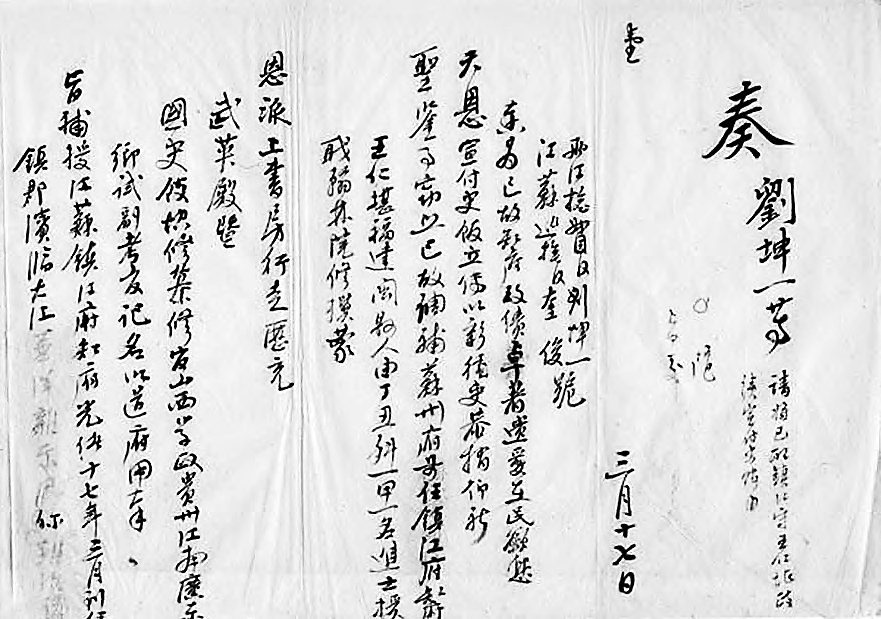 奏
劉坤一等
請將已故鎮江守王仁堪政
績宣付史館由
三月十七日
兩江總督臣劉坤一
江蘇巡撫臣奎俊跪
奏為已故知府政績卓著遺愛在民籲懇
天恩宣付史館立傳以彰循吏恭摺仰祈
聖鑒事竊照已故調補蘇州府原任鎮江府知府
王仁堪福建閩縣人由丁丑科一甲一名進士授
職翰林院修撰蒙
恩派上書房行走歷充
武英殿暨
國史館協修纂修官山西學政貴州江南廣東
鄉試副考官記名以道府用奉
旨補授江蘇鎮江府知府光緒十七年三月到任
鎮郡濱臨大江華洋雜處